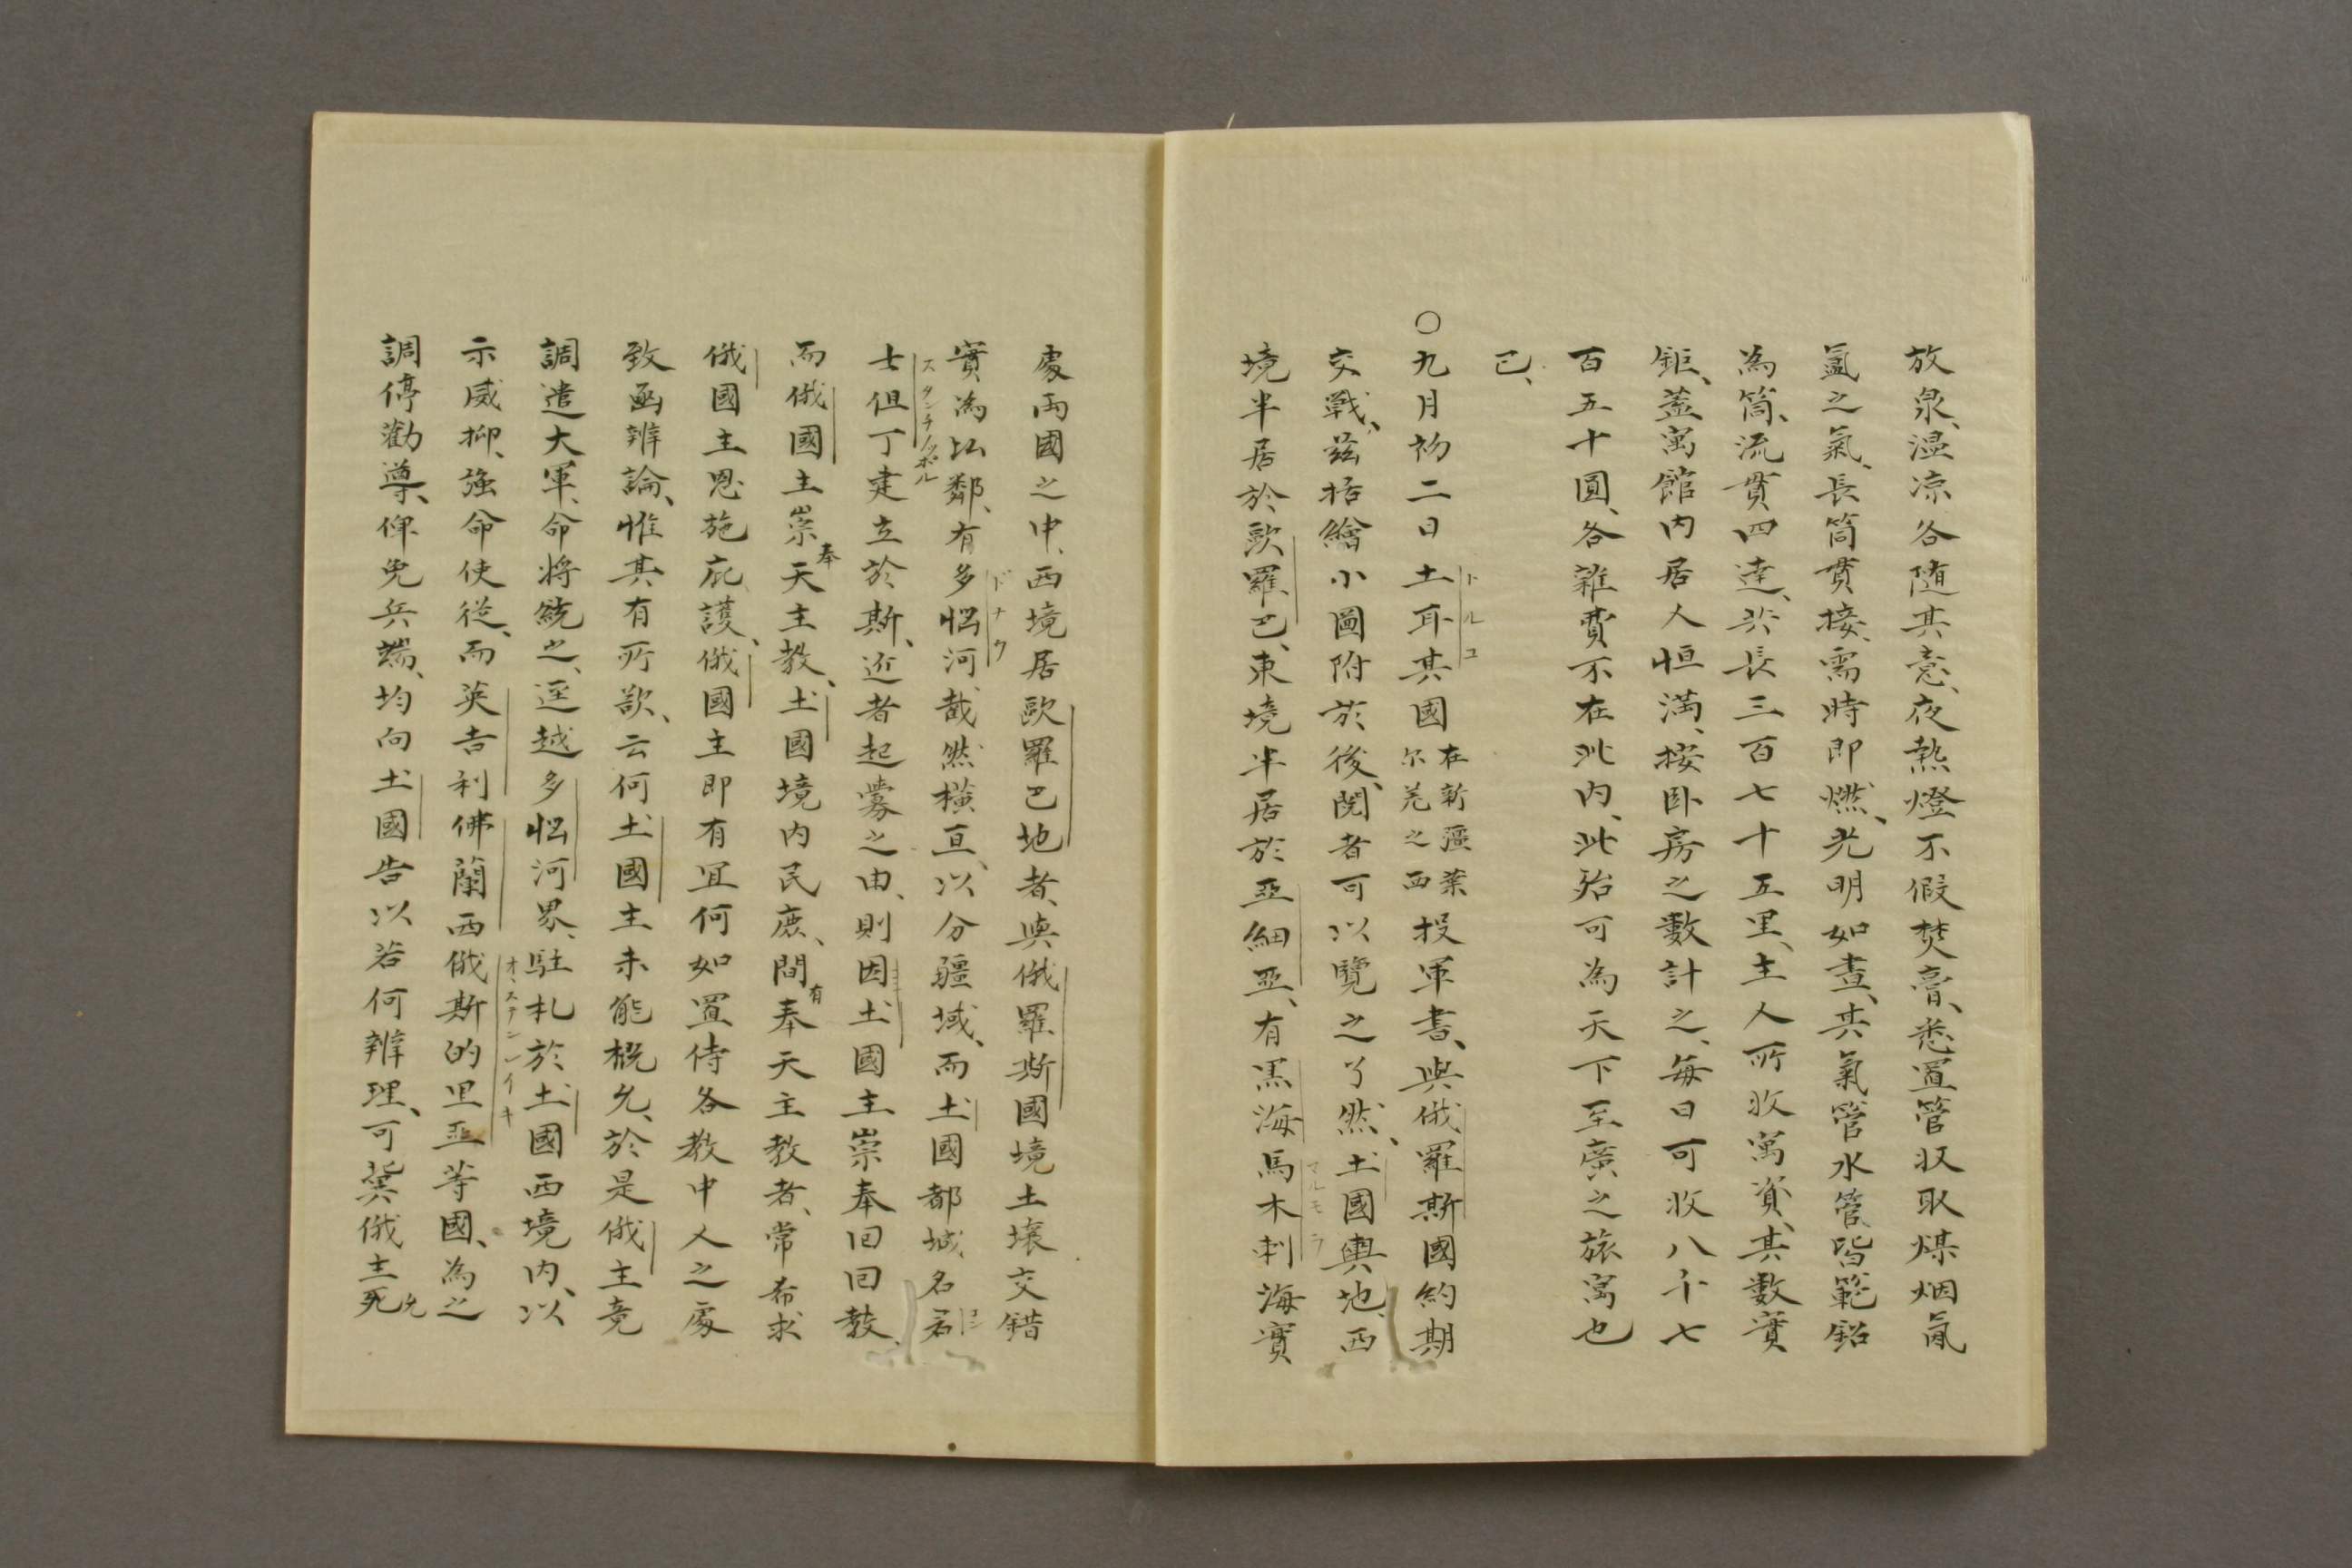 放泉、湿凉各随其意、夜熱燈不假焚膏、悉置管收取煤烟氤
氳之氣、長筒貫接、需時即燃、光明如晝、其氣管水管皆範鉛
為筒、流貫四達、共長三百七十五里、主人所收寓資、其數實
鉅、蓋寓館内居人恒満、按卧房之數計之、每日可收八千七
百五十圓、各雜費不在此内、此殆可為天下至廣之旅寓也
已、
〇九月初二日土耳其國在新疆葉尓羌之西投軍書、與俄羅斯國約期
トルコ
交戰、茲括繪小圖附於後、閲者可以覽之了然、土國輿地、西
境半居於歐羅巴、東境半居於亞細亞、有黒海馬木刺海實
マルモラ
處両國之中、西境居歐羅巴地者、與俄羅斯國境土壤交錯
實為比鄰、有多惱河截然横亘、以分疆域、而土國都城名君
ドナウ
コン
士但丁建立於斯、近者起釁之由、則因土國主崇奉回回教、
スタンチノッポル
而俄國主崇奉天主教、土國境内民庶、間有奉天主教者、常希求
俄國主恩施庇護、俄國主即有宜何如置待各教中人之處
致函辨論、惟其有所欲、云何土國主未能概允、於是俄主竟
調遣大軍、命将統之、逕越多惱河界、駐札於土國西境内、以
示威抑、強命使從、而英吉利佛蘭西俄斯的里亞等國、為之
オヽステンレイキ
調停勸導、俾免兵端、均向土國告以若何辨理、可冀俄主死
允